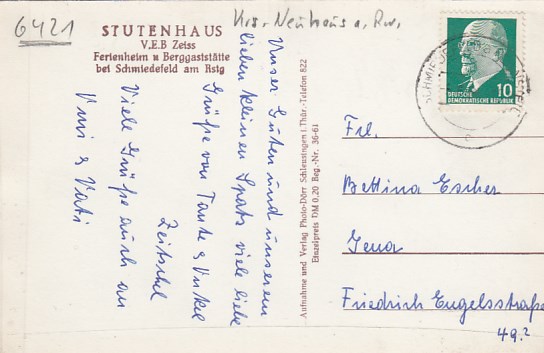 6421
Krs. Neuhaus a. Rw.
STUTENHAUS
V.E.B Zeiss
Ferienheim u Berggaststätte
bei Schmiedefeld am Rstg
Unser Guten und unserem
lieben kleinen Spatz viele liebe
Grüße von Tante & Onkel
Zeitschel
Viele Grüße auch an
Vati
Aufnahme und Verlag Photo-Dörr Schleusingen i. Thür.-Telefon 822
Einzelpreis DM 0.20 Reg.-Nr. 36-61
10
DEUTSCHE
DEMOKRATISCHE REPUBLIK
Frl.
Bettina Escher
Jena
Friedrich Engelsstraße
49.²